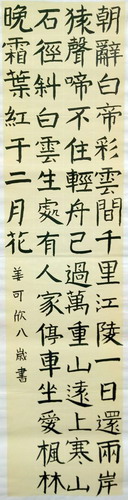 朝辭白帝彩雲間千里江陵一日還兩岸
猿聲啼不住輕舟已過萬重山遠上寒山
石徑斜白雲生處有人家停車坐愛楓林
晚霜葉紅于二月花
華可欣八歲書